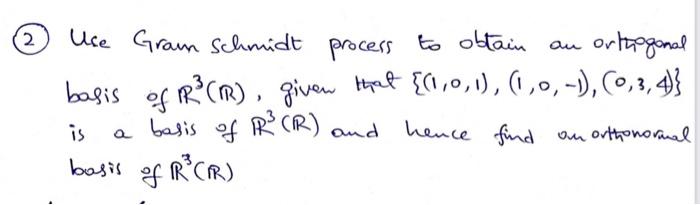 ② Use Gram Schmidt process to obtain an orthogonal
basis of ℝ³(ℝ), given that {(1,0,1), (1,0,-1), (0,3,4)}
is a basis of ℝ³(ℝ) and hence find an orthonormal
basis of ℝ³(ℝ)